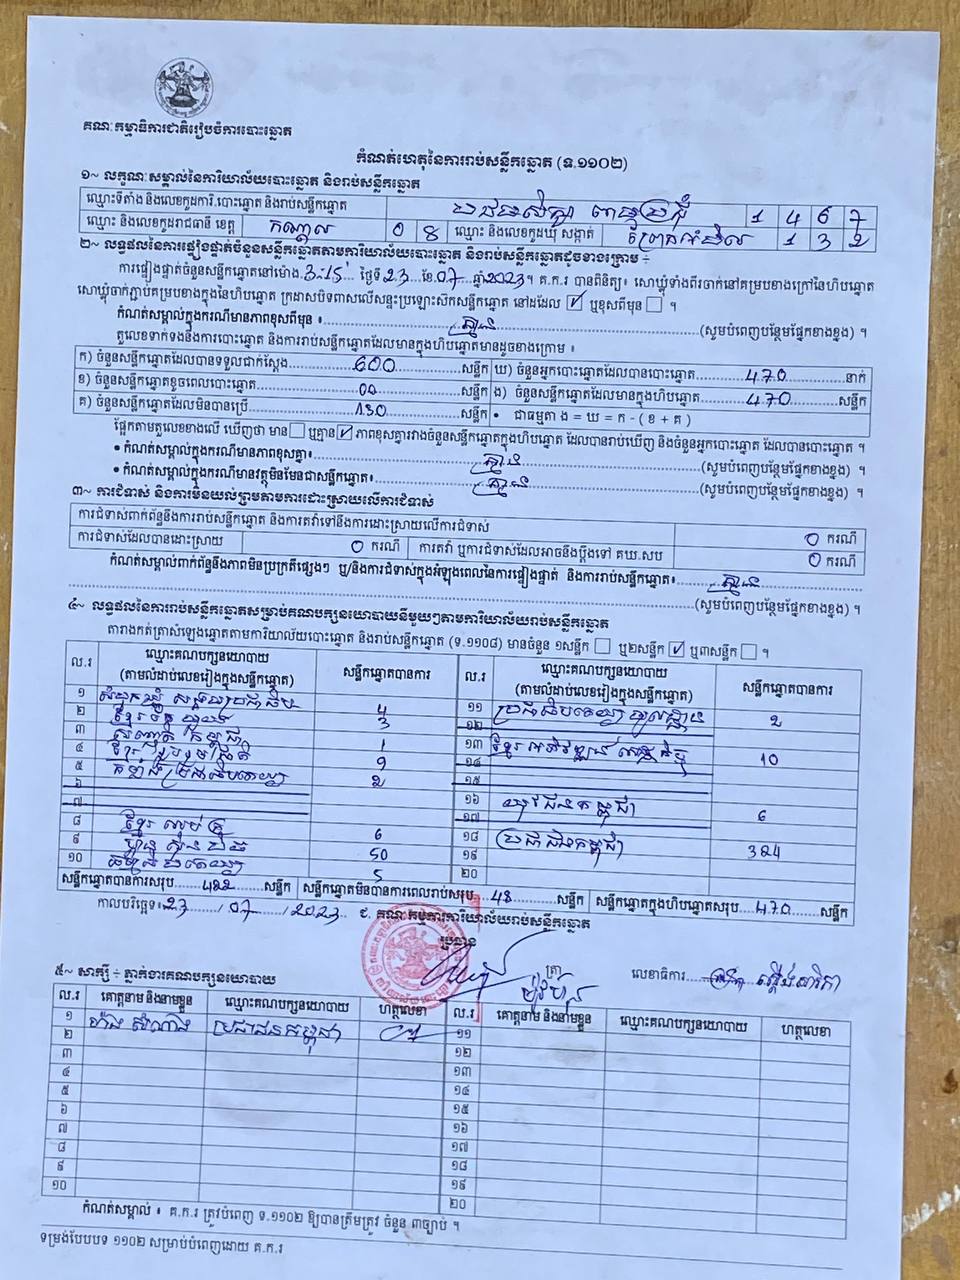 គណៈកម្មាធិការជាតិរៀបចំការបោះឆ្នោត
កំណត់ហេតុនៃការរាប់សន្លឹកឆ្នោត (ទ.១១០២)
១~ លក្ខណៈសម្គាល់នៃការិយាល័យបោះឆ្នោត និងរាប់សន្លឹកឆ្នោត
ឈ្មោះទីតាំង និងលេខកូដការិ.បោះឆ្នោត និងរាប់សន្លឹកឆ្នោត 1 4 6 7
ឈ្មោះ និងលេខកូដរាជធានី ខេត្ត កណ្តាល 0 8 ឈ្មោះ និងលេខកូដឃុំ សង្កាត់ 1 3 2
២~ លទ្ធផលនៃការផ្ទៀងផ្ទាត់ចំនួនសន្លឹកឆ្នោតតាមការិយាល័យបោះឆ្នោត និងរាប់សន្លឹកឆ្នោតដូចខាងក្រោម ÷
ការផ្ទៀងផ្ទាត់ចំនួនសន្លឹកឆ្នោតនៅម៉ោង 3:15 ថ្ងៃទី 23 ខែ 07 ឆ្នាំ 2023 ។ គ.ក.រ បានពិនិត្យ៖ សោឃ្លុំទាំងពីរចាក់នៅគម្របខាងក្រៅនៃហិបឆ្នោត
សោឃ្លុំចាក់ភ្ជាប់គម្របខាងក្នុងនៃហិបឆ្នោត ក្រដាសបិទពាសលើសន្ទះប្រឡោះសិកសន្លឹកឆ្នោត នៅដដែល ✓ ឬខុសពីមុន ។
កំណត់សម្គាល់ក្នុងករណីមានភាពខុសពីមុន ៖ គ្មាន (សូមបំពេញបន្ថែមផ្នែកខាងខ្នង) ។
តួលេខទាក់ទងនឹងការបោះឆ្នោត និងការរាប់សន្លឹកឆ្នោតដែលមានក្នុងហិបឆ្នោតមានដូចខាងក្រោម ៖
ក) ចំនួនសន្លឹកឆ្នោតដែលបានទទួលជាក់ស្តែង 600 សន្លឹក ឃ) ចំនួនអ្នកបោះឆ្នោតដែលបានបោះឆ្នោត 470 នាក់
ខ) ចំនួនសន្លឹកឆ្នោតខូចពេលបោះឆ្នោត 00 សន្លឹក ង) ចំនួនសន្លឹកឆ្នោតដែលមានក្នុងហិបឆ្នោត 470 សន្លឹក
គ) ចំនួនសន្លឹកឆ្នោតដែលមិនបានប្រើ 130 សន្លឹក • ជាធម្មតា ង = ឃ = ក - ( ខ + គ )
ផ្អែកតាមតួលេខខាងលើ ឃើញថា មាន ឬគ្មាន ✓ ភាពខុសគ្នារវាងចំនួនសន្លឹកឆ្នោតក្នុងហិបឆ្នោត ដែលបានរាប់ឃើញ និងចំនួនអ្នកបោះឆ្នោត ដែលបានបោះឆ្នោត ។
• កំណត់សម្គាល់ក្នុងករណីមានភាពខុសគ្នា៖ គ្មាន (សូមបំពេញបន្ថែមផ្នែកខាងខ្នង) ។
• កំណត់សម្គាល់ក្នុងករណីមានវត្ថុមិនមែនជាសន្លឹកឆ្នោត៖ គ្មាន (សូមបំពេញបន្ថែមផ្នែកខាងខ្នង) ។
៣~ ការជំទាស់ និងការមិនយល់ព្រមតាមការដោះស្រាយលើការជំទាស់
ការជំទាស់ពាក់ព័ន្ធនឹងការរាប់សន្លឹកឆ្នោត និងការតវ៉ាទៅនឹងការដោះស្រាយលើការជំទាស់ 0 ករណី
ការជំទាស់ដែលបានដោះស្រាយ 0 ករណី ការតវ៉ា ឬការជំទាស់ដែលអាចនឹងប្តឹងទៅ គឃ.សប 0 ករណី
កំណត់សម្គាល់ពាក់ព័ន្ធនឹងភាពមិនប្រក្រតីផ្សេងៗ ឬ/និងការជំទាស់ក្នុងអំឡុងពេលនៃការផ្ទៀងផ្ទាត់ និងការរាប់សន្លឹកឆ្នោត៖ គ្មាន
(សូមបំពេញបន្ថែមផ្នែកខាងខ្នង) ។
៤~ លទ្ធផលនៃការរាប់សន្លឹកឆ្នោតសម្រាប់គណបក្សនយោបាយនីមួយៗតាមការិយាល័យរាប់សន្លឹកឆ្នោត
តារាងកត់ត្រាសំឡេងឆ្នោតតាមការិយាល័យបោះឆ្នោត និងរាប់សន្លឹកឆ្នោត (ទ.១១០៨) មានចំនួន ១សន្លឹក ឬ២សន្លឹក ✓ ឬ៣សន្លឹក ។
ល.រ ឈ្មោះគណបក្សនយោបាយ (តាមលំដាប់លេខរៀងក្នុងសន្លឹកឆ្នោត) សន្លឹកឆ្នោតបានការ ល.រ ឈ្មោះគណបក្សនយោបាយ (តាមលំដាប់លេខរៀងក្នុងសន្លឹកឆ្នោត) សន្លឹកឆ្នោតបានការ
១ សំបុកឃ្មុំ សង្គមប្រជាធិប 4 ១១ ប្រជាធិបតេយ្យ មូលដ្ឋាន 2
២ ខ្មែរ 3 ១២
៣ កម្ពុជា 1 ១៣ ខ្មែរ អភិវឌ្ឍន៍ សេដ្ឋកិច្ច 10
៤ ខ្មែរ រួបរួមជាតិ 9 ១៤
៥ កម្លាំងប្រជាធិបតេយ្យ 2 ១៥
៦ ១៦ យុវជនកម្ពុជា 6
៧ ១៧
៨ ខ្មែរ ឈប់ក្រ 6 ១៨ ប្រជាជនកម្ពុជា 324
៩ ហ្វ៊ុនស៊ិនប៉ិច 50 ១៩
១០ ធម្មាធិបតេយ្យ 5 ២០
សន្លឹកឆ្នោតបានការសរុប 422 សន្លឹក សន្លឹកឆ្នោតមិនបានការពេលរាប់សរុប 48 សន្លឹក សន្លឹកឆ្នោតក្នុងហិបឆ្នោតសរុប 470 សន្លឹក
កាលបរិច្ឆេទ៖ 23 / 07 / 2023 ជ. គណៈកម្មការការិយាល័យរាប់សន្លឹកឆ្នោត
ប្រធាន
ត្រា លេខាធិការ
៥~ សាក្សី ÷ ភ្នាក់ងារគណបក្សនយោបាយ
ល.រ គោត្តនាម និងនាមខ្លួន ឈ្មោះគណបក្សនយោបាយ ហត្ថលេខា ល.រ គោត្តនាម និងនាមខ្លួន ឈ្មោះគណបក្សនយោបាយ ហត្ថលេខា
១ ប្រជាជនកម្ពុជា ១១
២ ១២
៣ ១៣
៤ ១៤
៥ ១៥
៦ ១៦
៧ ១៧
៨ ១៨
៩ ១៩
១០ ២០
កំណត់សម្គាល់ ៖ គ.ក.រ ត្រូវបំពេញ ទ.១១០២ ឱ្យបានត្រឹមត្រូវ ចំនួន ៣ច្បាប់ ។
ទម្រង់បែបបទ ១១០២ សម្រាប់បំពេញដោយ គ.ក.រ